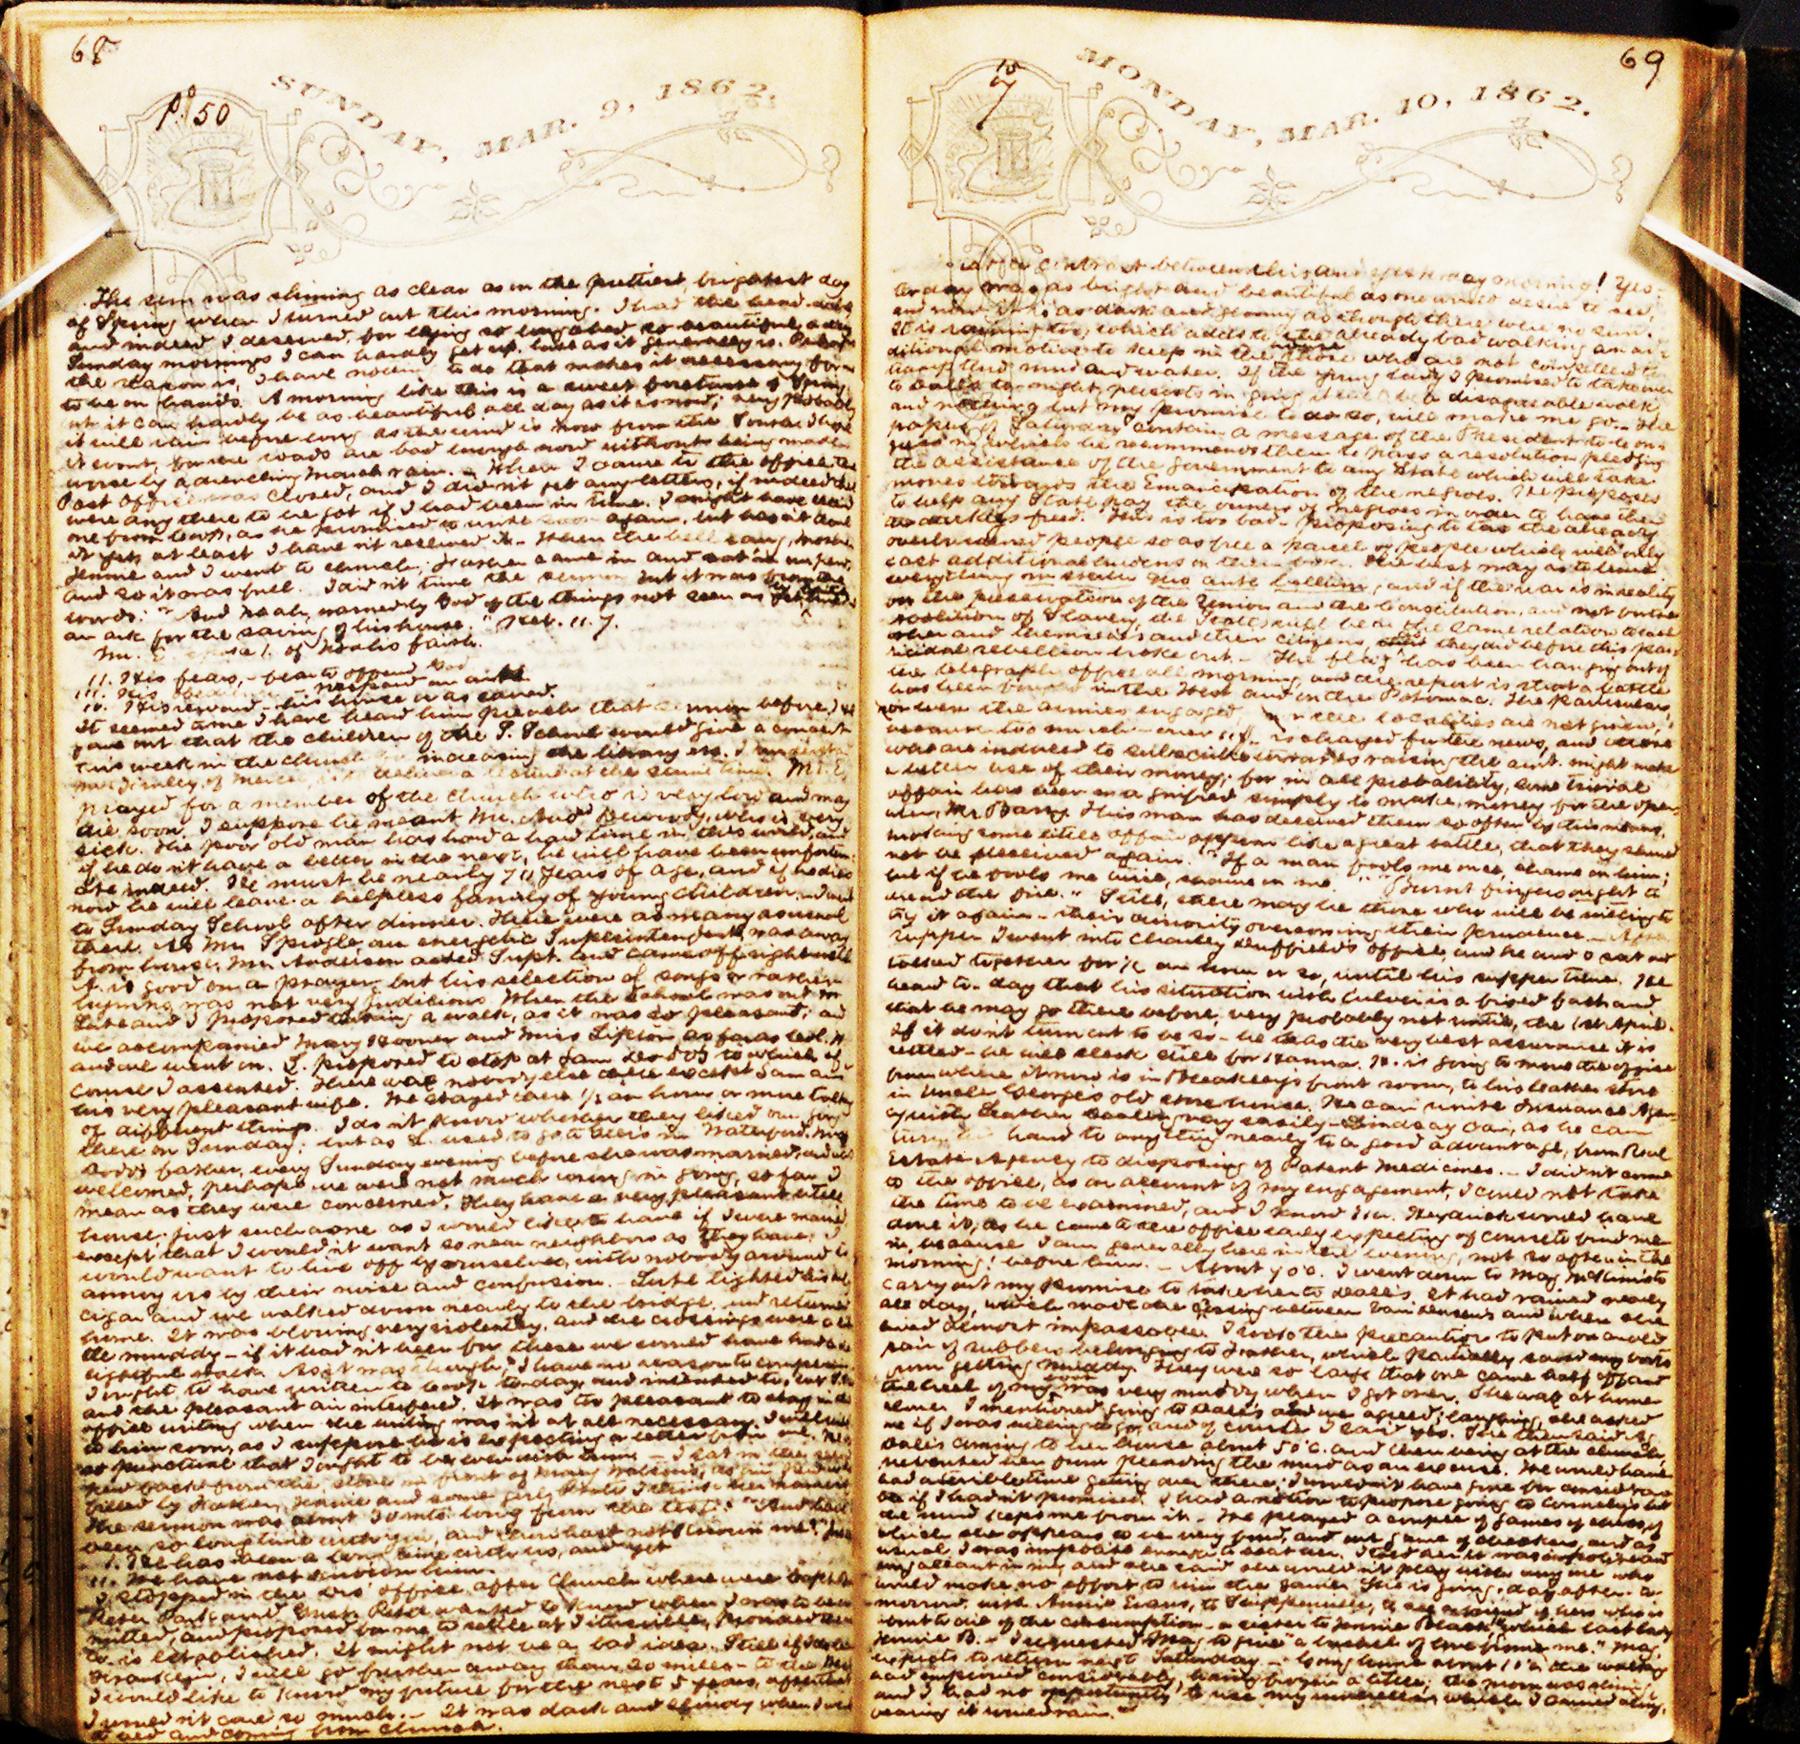 68
p. 50
SUNDAY, MAR. 9, 1862.
The sun was shining as clear as in the prettiest brightest day
of Spring when I turned out this morning. I had the head-ache
and indeed I deserved, for laying so long abed so beautiful a day
Sunday mornings I can hardly get up, late as it generally is. Perhaps
the reason is, I have nothing to do that makes it necessary for me
to be on hands. A morning like this is a sweet foretaste of Spring
but it can hardly be as beautiful all day as it is now; very probably
it will rain before long as the wind is now from the South. I hope
it wont, for the roads are bad enough now without being made
worse by a drenching March rain. - When I came to the office the
Post Office was closed, and I didn't get any letters, if indeed there
were any there to be got if I had been in time. I might have had
one from as he promised to write soon again, but hasn't done
it yet, at least I haven't received it. - When the bell rang, Mother
Jennie and I went to church; Father came in and sat in our pew,
and so it was full. I didn't time the sermon but it was from the
words: "And Noah, warned by God of the things not seen as yet
an ark for the saving of his house." Heb. 11. 7.
Mr. E. 1. of Noah's faith.
11. His fears, - fear to offend God
111. His - prepared an ark
1V. His reward - his house was saved.
It seemed to me I have heard him preach that sermon before. He
gave out that the children of the S. School would give a concert
this week in the church for increasing the library etc. I understand
of Mercer, will deliver a lecture at the same time. Mr. E.
prayed for a member of the church who is very low and may
die soon. I suppose he meant Mr. who is very
sick. The poor old man has had a hard time in this world, and
if he don't have a better in the next, he will have been unfortun-
ate indeed. He must be nearly 70 years of age, and if he dies
now he will leave a helpless family of young children. - I went
to Sunday School after dinner. There were as many as usual
there. As Mr. an energetic Superintendent, was away
from home, Mr. Anderson acted Supt. and came off right well
A. is good on a prayer but his selection of songs or rather
hymns was not very judicious. When the school was out
Lute and I proposed taking a walk, as it was so pleasant; and
we accompanied Mary Hoover and Miss as far as
and we went on. L. proposed to stop at Sam Dodd's to which of
course I assented. There was nobody else there except Sam and
his very pleasant wife. We stayed there ½ an hour or more talking
of different things. I don't know whether they liked our going
there on Sunday; but as L. used to go to hers in Waterford, Mrs
Dodd's father, every Sunday evening before she was married, and was
welcomed, perhaps we were not much wrong in going, so far I
mean as they were concerned. They have a very pleasant little
house: just such a one as I would like to have if I were married
except that I wouldn't want so near neighbors as they have; I
would want to live off by ourselves, with nobody around to
annoy us by their noise and confusion. - Lute lighted his
cigar and we walked down nearly to the bridge and returned
home. It was blowing very violently, and the crossings were a lit-
tle muddy - if it hadn't been for these we would have had a de-
lightful walk. As it was though, I have no reason to complain.
I ought to have written to today and intended to, but
and the pleasant air interfered. It was too pleasant to stay in the
office writing when the writing wasn't at all necessary. I will write
to him soon, as I suppose he is expecting a letter from me. He is
so punctual that I ought to be so with him. - I sat in the
pew back from the stove in front of as our pew was
filled by Father, Jennie and some girls
The sermon was about 30 mts. long from the text: "And have I
been so long time with you, and thou hast not known me?" John
1. He has been a long time with us, and yet
11. We have not known him.
I stopped in the Dis. office after Church where were
Peter wanted to know when I was to be ad-
mitted, and proposed for me to settle at Titusville, provided the
Co. is established. It might not be a bad idea. Still if I do leave
Franklin, I will go further away than 20 miles - to the
I would like to know my future for the next 5 years, after that
I wouldn't care so much. - It was dark and cloudy when I went
to bed and coming from Church.
69
10
7
MONDAY, MAR. 10, 1862.
What a contrast between this and yesterday morning! Yes-
terday was as bright and beautiful as one would desire to see,
and now it is as dark and gloomy as though there were no sun.
It is raining too, which adds to the already bad walking an ad-
ditional motive to keep in the house those who are not compelled to
tramp thro' mud and water. If the young lady I promised to take over
to Dalls to-night, persists in going it will be a disagreeable walk,
and nothing but my promise to do so, will make me go. - The
papers of Saturday contain a message of the President to Con-
gress in which he recommends them to pass a resolution pledging
the assistance of the government to any State which will take
moves towards the Emancipation of the negroes. He proposes
to help any State pay the owners of negroes in order to have the
darkies freed. This is too bad - proposing to tax the already
overburdened people so as free a parcel of people which will only
cast additional burdens on them. The best way is to leave
everything in statu quo ante bellum; and if the war is in reality
for the preservation of the Union and the Constitution, and not for the
abolition of Slavery, the States will bear the same relation to each
other and themselves and their citizens, they did before this par-
ricidal rebellion broke out. - The flag has been hanging out of
the telegraph office all morning and the report is that a battle
has been fought in the West and on the Potomac. The particulars,
nor even the armies engaged, nor the localities are not given,
because too much - over $8. - is charged for the news, and those
who are induced to subscribe towards raising the amt. might make
a better use of their money; for in all probability, some trivial
affair has been magnified simply to make money for the oper-
ator, Mr. Barry. This man has deceived them so often by this means,
making some little affair appear like a great battle, that they should
not be deceived again. "If a man fools me once, shame on him;
but if he fools me twice, shame on me." "Burnt fingers ought to
dread the fire." Still, there may be those who will be willing to
try it again - their curiosity overcoming their prudence. - After
supper I went into Charley Duffield's office, and he and I sat and
talked together for ½ an hour or so, until his supper time. He
heard to-day that his situation with Culver is a fixed fact and
that he may go there before, very probably not until, the 1st April.
If it don't turn out to be so - he has the very best assurance it is
settled - he will clerk still for Hanna. H. is going to move the office
from where it now is in Bleakley's front room, to his leather store
in Uncle George's old store house. He can unite Insurance Agen-
cy with Leather dealing very easily - Lindsay can, as he can
turn his hand to anything nearly to a good advantage, from Real
Estate Agency to disposing of Patent Medicines. - I didn't come
to the office, as on account of my engagement, I could not take
the time to be examined, and I know would have
done it, as he came to the office early expecting of course to find me
in, because I am generally here in the evening, not so often in the
morning, before him. - About 7 o'c. I went down to Mag to
carry out my promise to take her to Dall's. It had rained nearly
all day, which made the crossing between and where she
lived almost impassable. I took the precaution to put on an old
pair of rubbers belonging to Father, which partially saved my boots
from getting muddy. They were so large that one came half off and
the heel of my boot was very muddy when I got over. She was at home
alone. I mentioned going to Dall's and we agreed; laughing, she asked
me if I was willing to go and of course I said yes. She then said
Dall's coming to her house about 5 o'c. and then being at the church,
prevented her from pleading the mud as an excuse. We would have
had a terrible time getting over there; I wouldn't have gone for considera-
tion if I hadn't promised. I had a notion to propose going to Connely's but
the mud kept me from it. - We played a couple of games of chess of
which she appears to be very fond, and one game of checkers, and as
usual, I was impolite enough to beat her. I told her it was impolite and
ungallant in me, and she said she wouldn't play with any one who
would make no effort to win the game. She is going, day after to-
morrow, with Annie Evans, to Shippenville, to see a friend of hers who is
about to die of the consumption - a sister to Jennie Black, which last lady
Jennie B. - I requested Mag to give "a bushel of love from me." Mag.
expects to return next Saturday. - Going home about 11 o'c the walking
had improved considerably, having frozen a little; the moon was shining
and I had no opportunity to use my umbrella, which I carried along,
fearing it would rain.